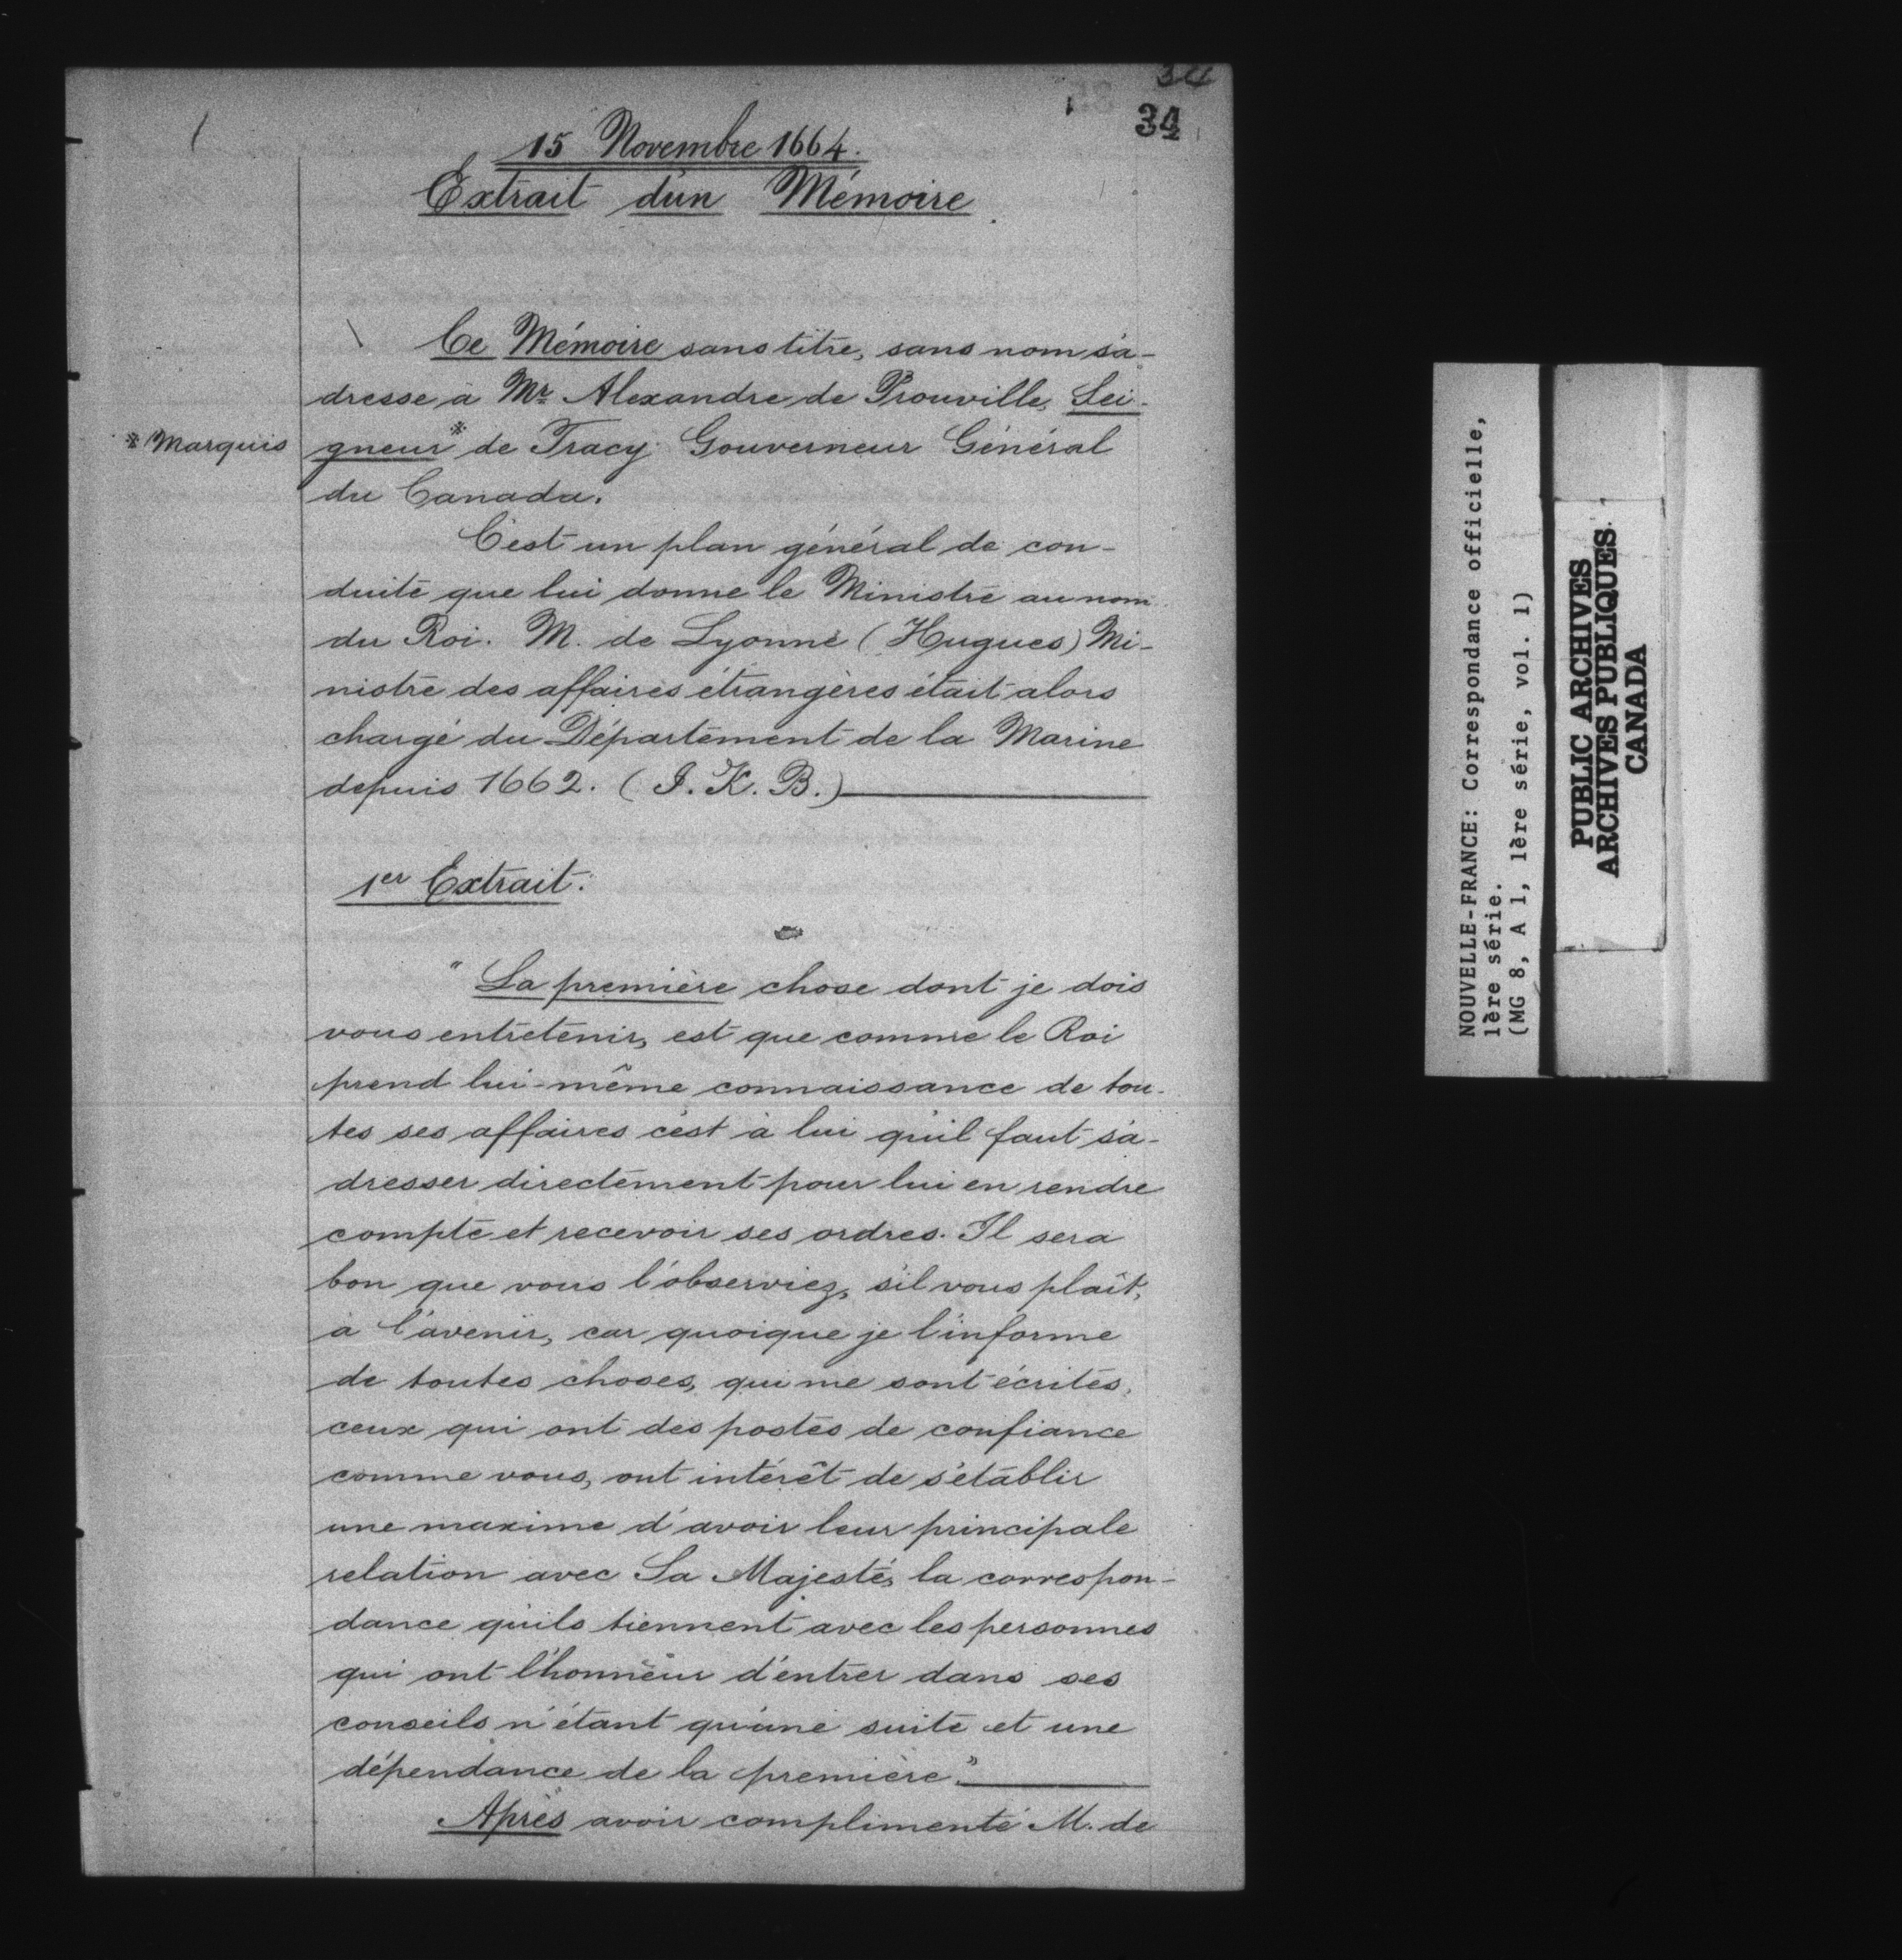 34
34
15 Novembre 1664.
Extrait d'un Mémoire.
Ce Mémoire sans titre, sans nom s'a-
dresse à Mr. Alexandre de Prouville, Sei-
* Marquis
gneur* de Tracy Gouverneur Général
du Canada.
C'est un plan général de con-
duite que lui donne le Ministre au nom
du Roi. M. de Lyonne (Hugues) Mi-
nistre des affaires étrangères était alors
chargé du Département de la Marine
depuis 1662. (J. K. B.)
1er Extrait.
"La première chose dont je dois
vous entretenir, est que comme le Roi
prend lui-même connaissance de tou-
tes ses affaires c'est à lui qu'il faut s'a-
dresser directement pour lui en rendre
compte et recevoir ses ordres. Il sera
bon que vous l'observiez, s'il vous plaît,
à l'avenir, car quoique je l'informe
de toutes choses, qui me sont écrites,
ceux qui ont des postes de confiance
comme vous, ont intérêt de s'établir
une maxime d'avoir leur principale
relation avec Sa Majesté, la correspon-
dance qu'ils tiennent avec les personnes
qui ont l'honneur d'entrer dans ses
conseils n'étant qu'une suite et une
dépendance de la première."
Après avoir complimenté M. de
NOUVELLE-FRANCE: Correspondance officielle,
1ère série.
(MG 8, A 1, 1ère série, vol. 1)
PUBLIC ARCHIVES
ARCHIVES PUBLIQUES
CANADA